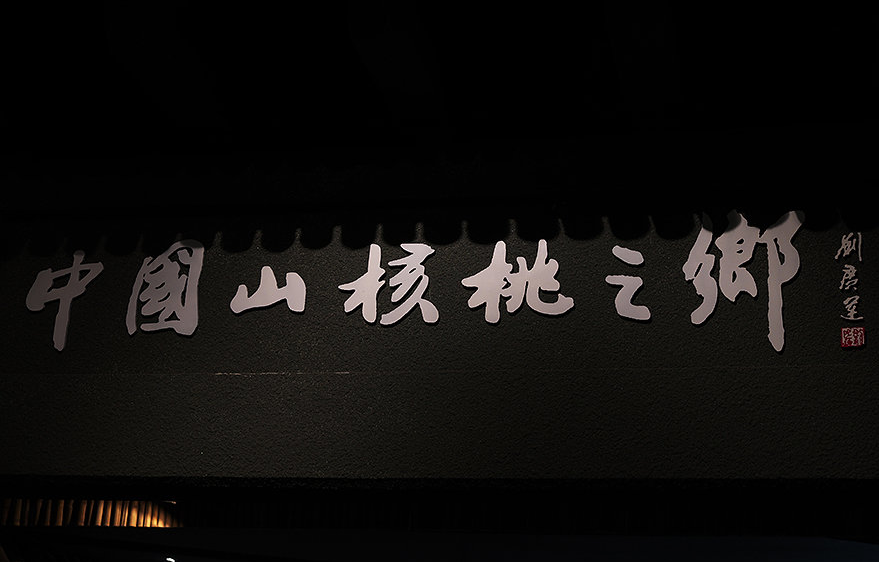 中國山核桃之鄉
劉廣運